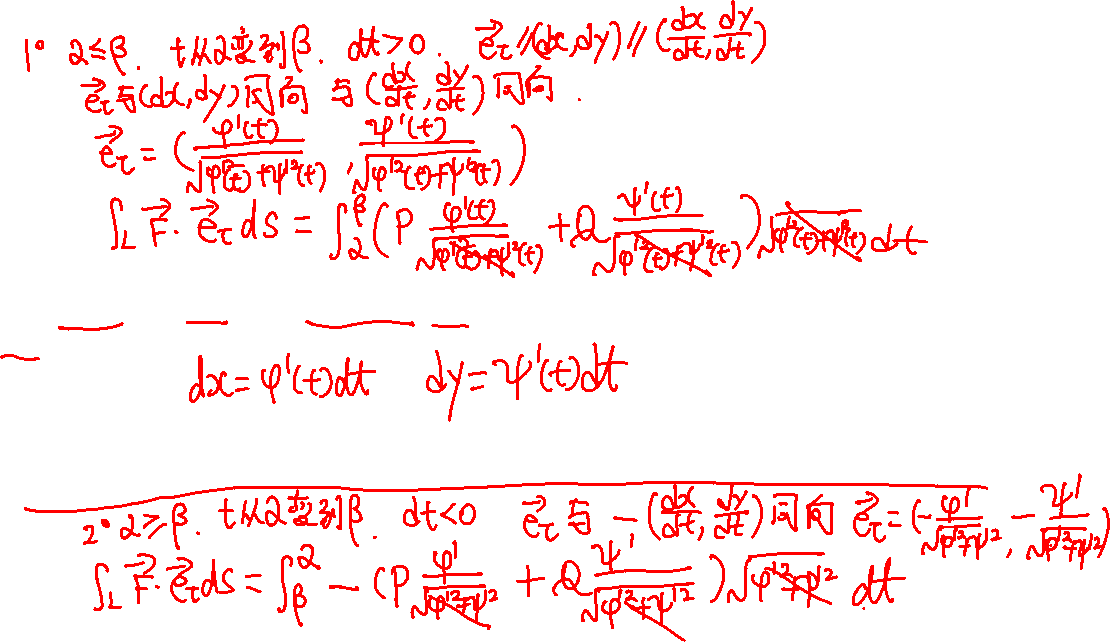 1° α≤β. t从α变到β. dt>0. \vec{e}_τ∥(dx,dy)∥(\frac{dx}{dt},\frac{dy}{dt})
\vec{e}_τ与(dx,dy)同向 与(\frac{dx}{dt},\frac{dy}{dt})同向.
\vec{e}_τ=(\frac{φ'(t)}{\sqrt{φ'^2(t)+ψ'^2(t)}},\frac{ψ'(t)}{\sqrt{φ'^2(t)+ψ'^2(t)}})
∫_L \vec{F}·\vec{e}_τ ds=∫_α^β(P\frac{φ'(t)}{\sqrt{φ'^2(t)+ψ'^2(t)}}+Q\frac{ψ'(t)}{\sqrt{φ'^2(t)+ψ'^2(t)}})\sqrt{φ'^2(t)+ψ'^2(t)}dt
dx=φ'(t)dt dy=ψ'(t)dt
2° α≥β. t从α变到β. dt<0 \vec{e}_τ与-(\frac{dx}{dt},\frac{dy}{dt})同向 \vec{e}_τ=(-\frac{φ'}{\sqrt{φ'^2+ψ'^2}},-\frac{ψ'}{\sqrt{φ'^2+ψ'^2}})
∫_L \vec{F}·\vec{e}_τ ds=∫_β^α-(P\frac{φ'}{\sqrt{φ'^2+ψ'^2}}+Q\frac{ψ'}{\sqrt{φ'^2+ψ'^2}})\sqrt{φ'^2+ψ'^2} dt